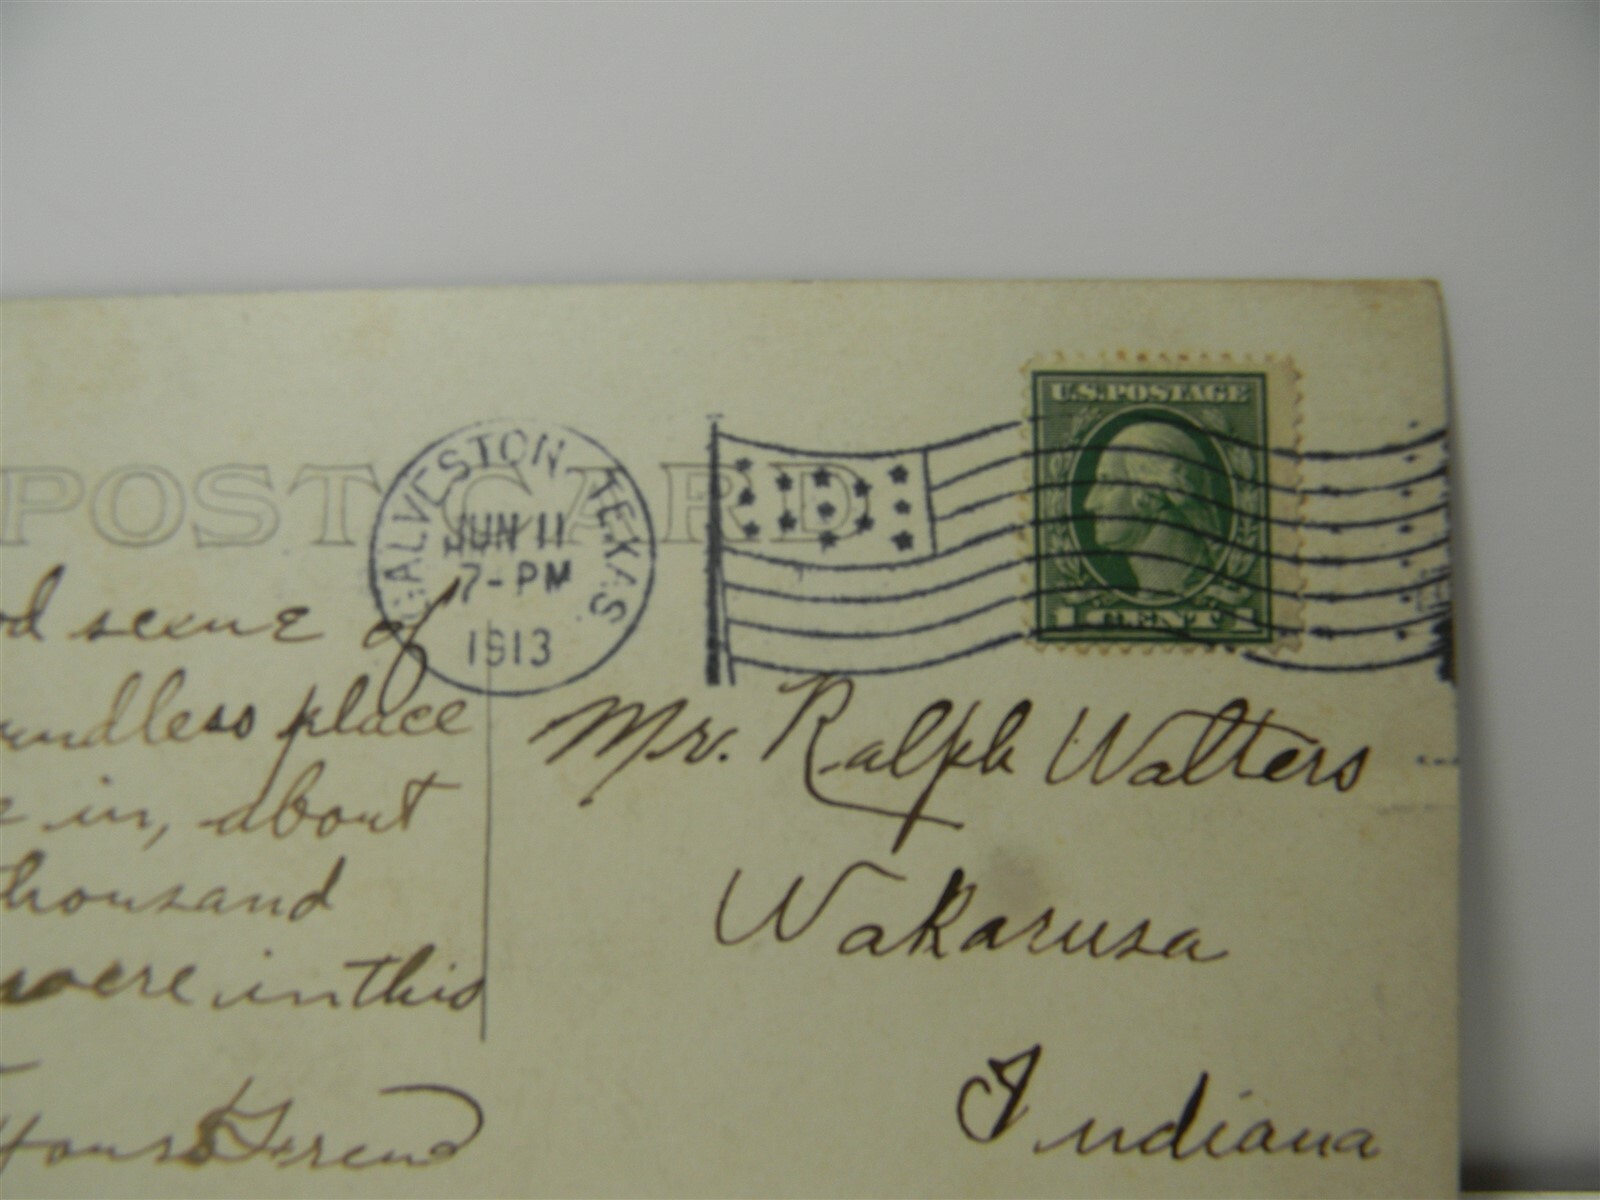 POST CARD
GALVESTON, TEXAS.
JUN 11
7-PM
1913
U.S. POSTAGE
1 CENT 1
scene of
place
in, about
thousand
were in this
Yours Friend
Mr. Ralph Walters
Wakarusa
Indiana